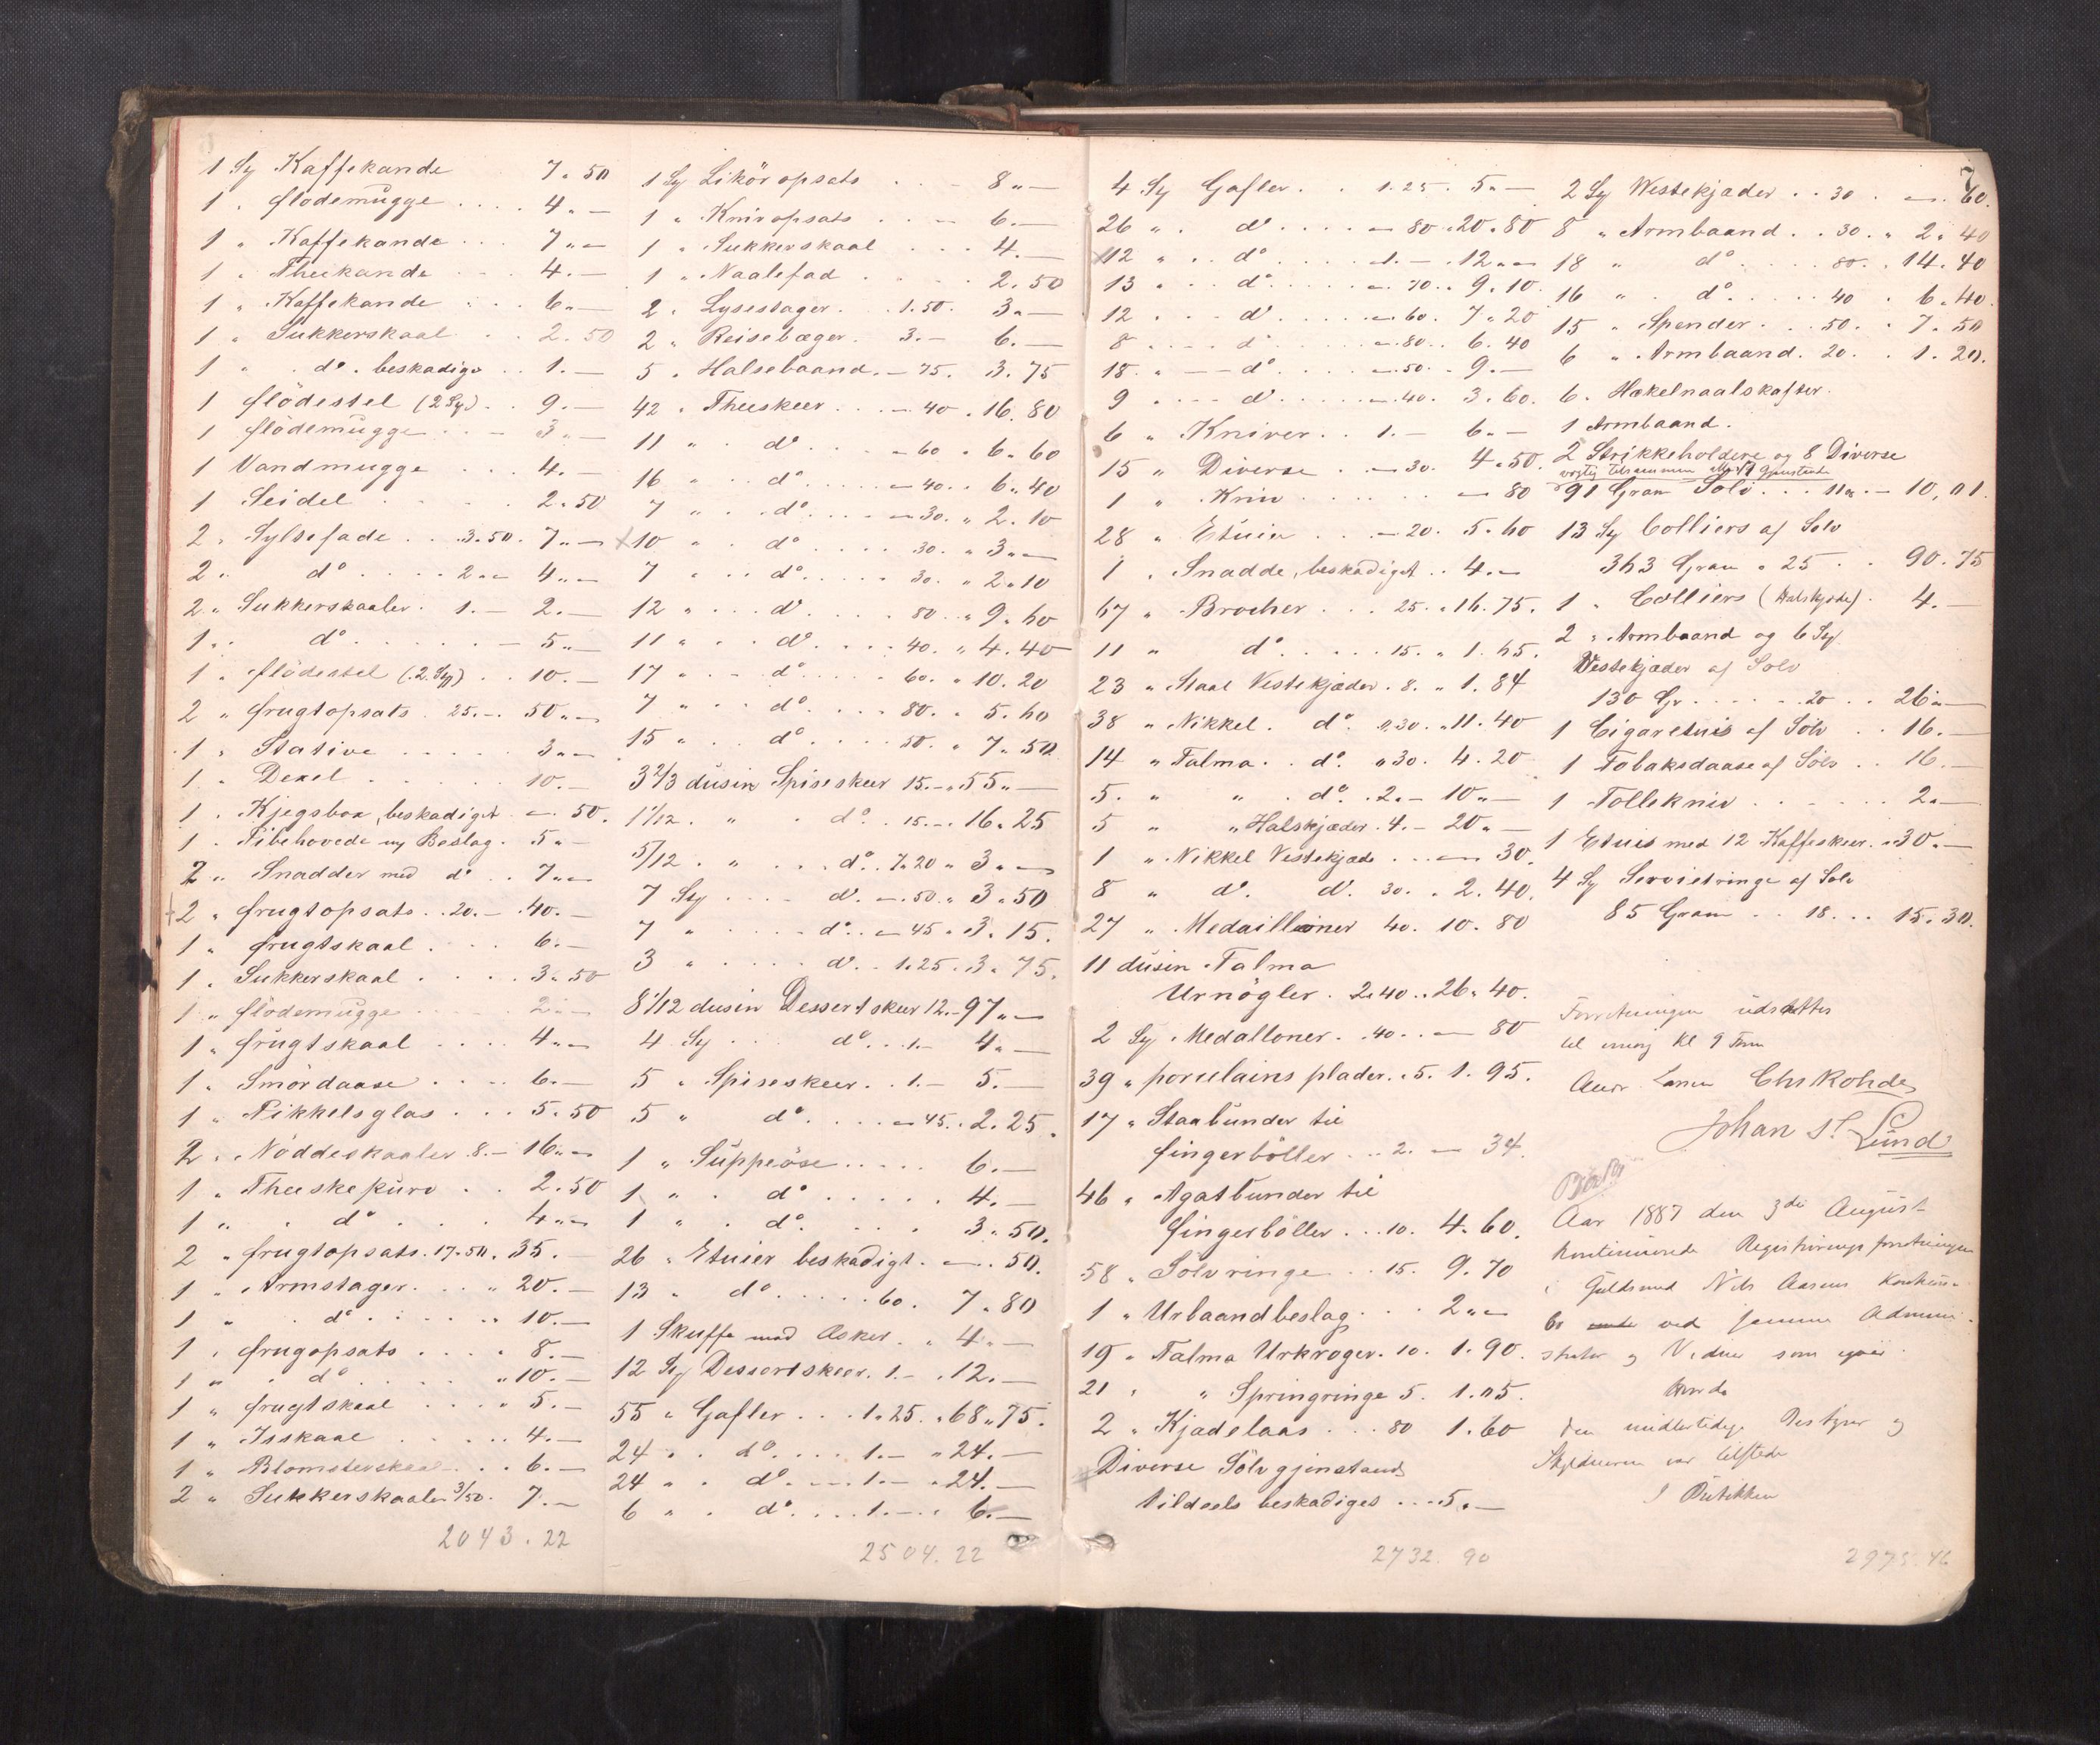 1 Sy Kaffekande 7 " 50
1 " flödemugge .... 4 " —
1 " Kaffekande ... 7 " —
1 " Theekande ... 4. —
1 " Kaffekande ... 6 " —
1 " Sukkerskaal .. 2. 50
1 " do. beskadige .. 1. —
1 flödestel (2 Sy) .. 9. —
1 flödemugge ... 3 " —
1 Vandmugge ... 4. —
1 Seidel ... 2 " 50
2 " Syltefade .. 3. 50. 7 " —
2 " do .... 2 " — 4 " —
2 " Sukkerskaaler. 1. — 2. —
1 " do ..... 5 " —
1 " flödestel (2. Sy) .. 10. —
2 " frugtopsats. 25. — 50 " —
1 " Stative ..... 3 " —
1 " Dexel ..... 10. —
1 " Kjegsbox, beskadiget — 50.
1 " Pibehovede m Beslag. 5 " —
2 " Snadder med do .. 7 " —
+2 " frugtopsats .. 20. — 40. —
1 " frugtskaal .... 6. —
1 " Sukkerskaal .... 3 " 50
1 " flödemugge ..... 2 " —
1 " frugtskaal .... 4 " —
1 " Smördaase .... 6. —
1 " Pikkelsglas ... 5. 50
2 " Nöddeskaaler 8. — 16 " —
1 " Theeskekurv .. 2. 50
1 " . do .... 4 " —
2 " frugtopsats. 17 " 50. 35. —
1 " Armstager ... " 20. —
1 " . do ..... " 10. —
1 " frugopsats .... " 8. —
1 " . do ..... " 10. —
1 " frugtskaal .... " 5. —
1 " Isskaal ..... 4. —
1 " Blomsterskaal .. 6. —
2 " Sukkerskaaler 3/50. 7. —
2043. 22
1 Sy Liköropsats ... 8 " —
1 " Knivopsats .... 6. —
1 " Sukkerskaal ... 4. —
1 " Naalefad .... 2. 50
2 " Lysestager .. 1. 50. 3 " —
2 " Reisebæger. 3. — 6. —
5 " Halsebaand. — 75. 3. 75
42 " Theeskeer ... — 40 . 16. 80
11 " . do ... — 60 . 6 " 60
16 " .. do .... — 40 .. 6 " 40
7 " .. do .... — 30. " 2. 10
×10 " .. do .... 30. " 3 " —
7 " .. do .... 30. " 2 " 10
12 " ... do .... 80 .. " 9 " 60
11 " .. do .... 40. " 4. 40
17 " .. do .... 60. " 10. 20
7 " .. do .... 80. . 5. 60
15 " .. do .... 50. " 7 " 50
3 2/3 dusin Spiseskeer 15. — " 55 " —
1 1/12 . " . do .. 15. — . 16 " 25
5/12 . " ... do. 7 " 20 " 3 " —
7 Sy .... do. — . 50. " 3 " 50
7 " .... do .. — 45 . 3. 15.
3 " .... do .. 1. 25. 3 " 75.
8 1/12 dusin Dessertskeer 12. — 97 " —
4 Sy ... do ... 1. — 4 " —
5 " Spiseskeer .. 1. — 5. —
5 " do .... — 45. . 2. 25.
1 " Suppeöse ..... 6. —
1 " . do ..... 4. —
1 " . do. .... 3 " 50.
26 " Etuier beskadigt. — . 50.
13 " do ..... 60. 7 " 80
1 Skuffe med Æsker. " 4 " —
12 Sy Dessertskeer. 1. — . 12. —
55 " Gafler ... 1 " 25. " 68 " 75.
24 " . do .... 1. — " 24. —
24 " . do. — .. 1. — . " 24. —
6 " . do. ... 1. — . " 6. —
2504. 22
7
4 Sy Gafler .. 1. 25. 5 " —
26 " . do .... — 80 . 20 " 80
112 " .. do .... — 1. — . 12 " —
13 " .. do ..... — . 70 . " 9. 10
12 " ... do ..... — . 60. 7 " 20
8 .... do ..... — . 80 .. 6. 40
18. " — — do .... — . 50. . 9. —
9 .... do ..... — . 40. 3. 60.
6 " Kniver .. 1. — 6 " —
15 " Diverse .. — 30. 4 " 50.
1 " Kniv ...... — 80
28 " Etuier ... — 20. 5. 60
1 " Snadde, beskadiget .. 4. —
67 " Brocher ... 25. " 16. 75.
11 " do ..... 15. " 1. 65.
23 " Staal Vestekjæder . 8. " 1. 84
38 " Nikkel. do. " 30. " 11. 40
14 " Talma .. do. " 30. 4. 20
5. " " . do. . 2. — 10 " —
5 " " Halskjæder. 4. — 20 " —
1 " Nikkel Vestekjæde ... — 30.
8 " do. do. 30. . 2. 40.
27 " Medaillioner 40. 10. 80
11 dusin. Talma
Urnögler. 2. 40 .. 26 " 40.
2 Sy. Medalloner. . 40 .. — 80
39 " porcelains plader. . 5. 1. 95.
17 " Staabunder til
fingerböller ... 2. — 34.
46 " Agatbunder til
fingerböller ... 10. 4. 60.
58 " Sölvringe .. 15. 9. 70
1 " Urbaandbeslag ... 2 " —
19 " Talma Urkroger. 10. 1. 90.
21 " " Springringe 5. 1. 05.
2 " Kjædelaas ... 80 1. 60
Diverse Sölvgjenstand
tildeels beskadiges ... 5. —
2732. 90
2 Sy Westekjæder .. 30 . — . 60.
8 " Armbaand .. 30. " 2 " 40
18 " do .... 80. . 14. 40
16 " . do ..... 40 . 6. 40.
15 " Spender ... 50. . 7. 50
6 " Armbaand. 20. . 1. 20.
6 " Hækelnaalskafter.
1 Armbaand.
2 Strikkeholdere og 8 Diverse
91 Gram Sölv ... 11. — 10, 01.
13 Sy Colliers af Solv
363 Gram " 25 .. 90. 75
1 " Colliers (Halskjæde). 4. —
2 " Armbaand og 6 Sy
Westekjæder af Solv
130 Gr ..... 20 .. 26 " —
1 Cigaretuis af Sölv .. 16. —
1 Tobaksdaase af Sölv .. 16. —
1 Tollekniv ..... 2 " —
1 Etuis med 12 Kaffeskeer. " 30. —
4 Sy Servietringe af Solv
85 Gram .. 18. .. 15. 30.
Forretningen udsættes
til imorg Kl 9 Fm
Chr Rohde
Johan St. Lund
Aar 1887 den 3die August
kontinuerede Registreringsforretningen
i Guldsmed Nils Aasens Konkurs-
bo ved samme Admini-
strator og Vidner som igaar.
den midlertidige Bestyrer og
Skyldneren var tilstede
I Butikken
2975. 46